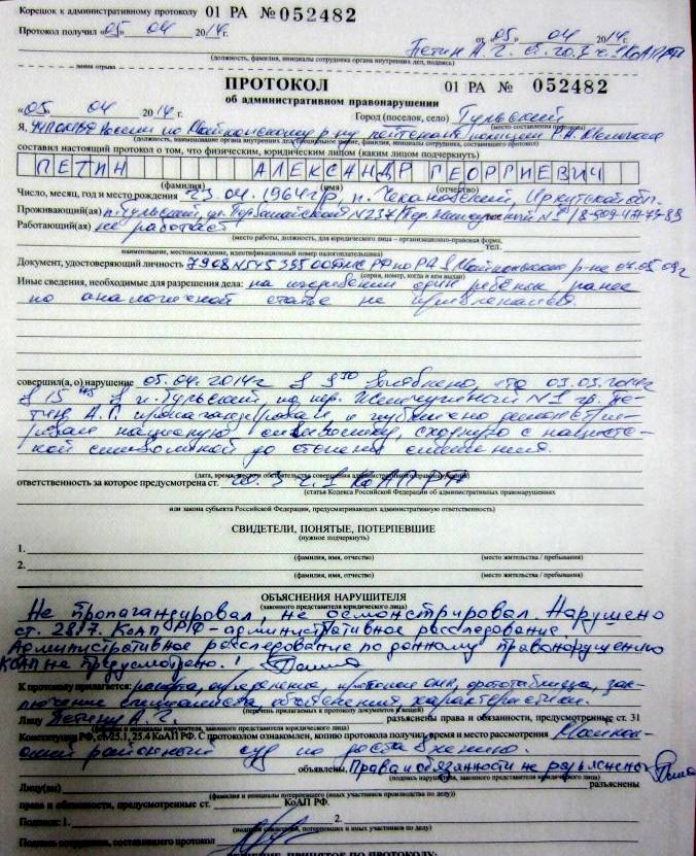 Корешок к административному протоколу 01 РА №052482
Протокол получил «05» 04 2014г. от 05 04 2014г.
Петин А.Г. ст. 20.3 ч. 1 КоАП РФ
(должность, фамилия, инициалы сотрудника органа внутренних дел, подпись)
линия отрыва
ПРОТОКОЛ 01 РА № 052482
об административном правонарушении
«05» 04 2014г. Город (поселок, село) Тульский
(место составления протокола)
Я, России по Майкопскому р-ну лейтенант полиции
составил настоящий протокол о том, что физическим, юридическим лицом (каким лицом подчеркнуть)
ПЕТИН АЛЕКСАНДР ГЕОРГИЕВИЧ
(фамилия) (имя) (отчество)
Число, месяц, год и место рождения 23.04.1964г.р, п. Чекановский, Иркутской обл.
Проживающий(ая) п. Тульский, ул. Первомайская №237/пер. Жемчужный №1
Работающий(ая) не работает
(место работы, должность, для юридического лица – организационно-правовая форма,
тел.
наименование, местонахождение, идентификационный номер налогоплательщика)
Документ, удостоверяющий личность 7908 №545395 по РА в Майкопском р-не
(серия, номер, когда и кем выдан)
Иные сведения, необходимые для разрешения дела: на иждивении один ребенок, ранее
по аналогичной статье не привлекался.
совершил(а, о) нарушение 05.04.2014г в 9³⁰ выявлено, что 03.03.2014г
в 15 п. Тульский, по пер. Жемчужный №1 гр. Пе-
тин А.Г. пропагандировал и публично демонстри-
ровал символику, сходную с нацистс-
кой символикой до степени смешения.
(дата, время, место и обстоятельства совершения административного правонарушения)
ответственность за которое предусмотрена ст. 20.3 ч. 1 КоАП РФ
(статья Кодекса Российской Федерации об административных правонарушениях
или закона субъекта Российской Федерации, предусматривающих административную ответственность)
СВИДЕТЕЛИ, ПОНЯТЫЕ, ПОТЕРПЕВШИЕ
(нужное подчеркнуть)
1.
(фамилия, имя, отчество) (место жительства / пребывания)
2.
(фамилия, имя, отчество) (место жительства / пребывания)
ОБЪЯСНЕНИЯ НАРУШИТЕЛЯ
(законного представителя юридического лица)
Не пропагандировал, не демонстрировал. Нарушено
ст. 28.7. КоАП РФ – административное расследование.
Административное расследование по данному правонарушению
КоАП не предусмотрено.!
К протоколу прилагается: рапорта, определение, протокол, фототаблица, зак-
лючение специалиста, объяснения, характеристики.
(перечень прилагаемых к протоколу документов и вещей)
Лицу Петину А.Г. разъяснены права и обязанности, предусмотренные ст. 51
(фамилия и инициалы нарушителя, законного представителя юридического лица)
Конституции РФ, ст. 25.1, 25.4 КоАП РФ. С протоколом ознакомлен, копию протокола получил, время и место рассмотрения Майкоп-
ский районный суд по
объявлены, Права и обязанности не разъяснены
(подпись нарушителя, законного представителя юридического лица)
Лицу(ам) разъяснены
(фамилия и инициалы потерпевших и иных участников производства по делу)
права и обязанности, предусмотренные ст. КоАП РФ.
Подписи: 1. 2.
(подписи свидетелей, потерпевших и иных участников по делу)
Подпись сотрудника, составившего протокол
РЕШЕНИЕ, ПРИНЯТОЕ ПО ПРОТОКОЛУ: